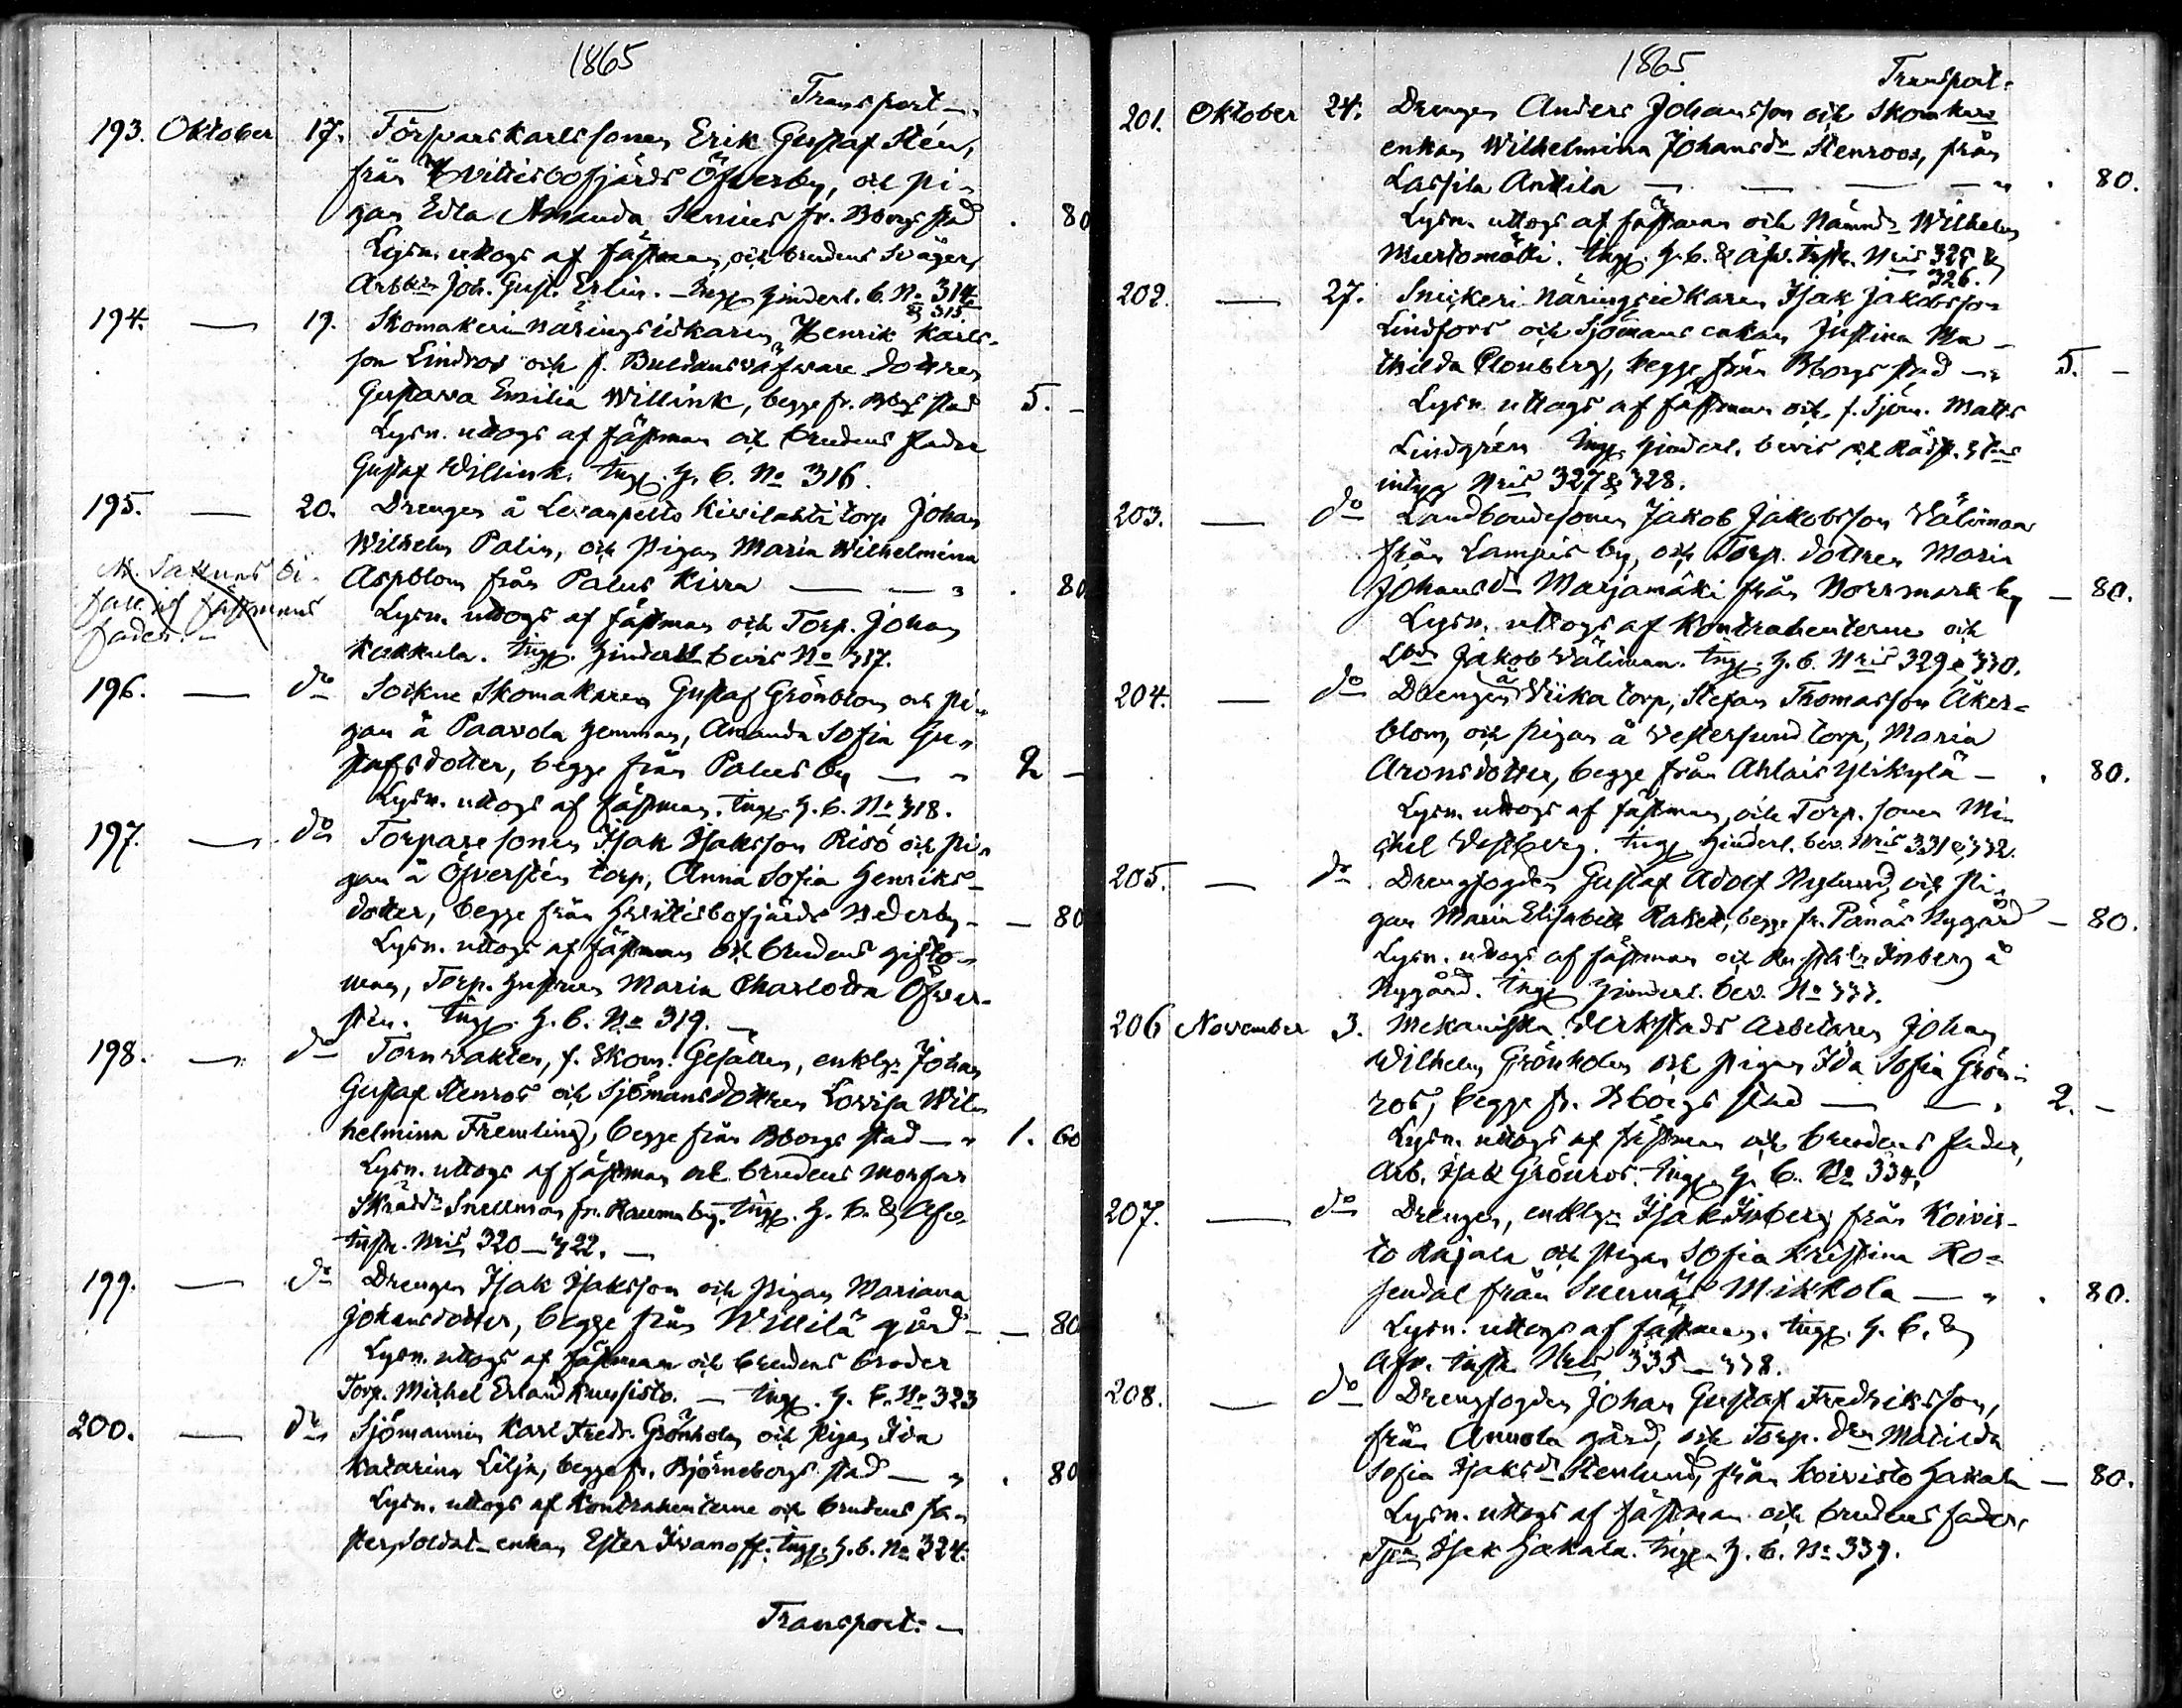 1865
Transport.
193. Oktober 17. Torparekarlssonen Erik Gustaf Stén,
från Hvittisbofjärds Öfverby, och pi-
gan Edla Amanda Senius fr. Bborgs stad . 80
Lysn. uttogs af fästman, och brudens Svåger,
Arbkn Joh. Gust. Erlin. - Ingg. hinderl. b. No 314
& 315.
194. — 19. Skomakeri Näringsidkaren Henrik Karls-
son Lindros och f. Buldansväfvare dottren
Gustava Emilia Willink, begge fr. Bborgs stad 5. -
Lysn. uttogs af fästman och brudens fader
Gustaf Willink. Ingg. h. b. No 316.
195. — 20. Drengen å Levanpelto Kivilahti torp Johan
Wilhelm Palin, och Pigan Maria Wilhelmina
Aspblom från Palus Kirra — — " . 80
Lysn. uttogs af fästman och Torp. Johan
Kakkula. Ingg. hinderl. bevis No 317.
N. Saknas bi-
fall af fästmans
fader. -
196. — do Sockne Skomakaren Gustaf Grönblom och pi-
gan å Paavola hemman, Amanda Sofia Gu-
stafsdotter, begge från Palus by — " 2 -
Lysn. uttogs af fästman. Ingg. h. b. No 318.
197. — do Torpare sonen Isak Isaksson Risö och pi-
gan å Öfverstén torp, Anna Sofia Henriks-
dotter, begge från Hvittisbofjärds Nederby - — 80
Lysn. uttogs af fästman och brudens gifto-
man, Torp. hustrun Maria Charlotta Öfver-
stén. Ingg. h. b. No 319. —
198. — do Tornvakten, f. Skom. Gesällen, enklgn Johan
Gustaf Stenros och Sjömansdottren Lovisa Wil-
helmina Fremling, begge från Bborgs stad — " 1. 60
Lysn. uttogs af fästman och brudens morfar
Skrädd. Snellman fr. Rauma by. Ingg. h. b. & Afv.
Inst. Nris 320 — 322. —
199. — do Drengen Isak Isaksson och Pigan Mariana
Johansdotter, begge från Willilä gård - — 80
Lysn. uttogs af fästman och brudens broder
Torp. Michel Erland Kuusisto. — Ingg. h. b. No 323
200. — do Sjömannen Karl Fredr. Grönholm och Pigan Ida
Katarina Lilja, begge fr. Björneborgs stad — " . 80
Lysn. uttogs af Kontrahenterne och brudens fa-
ster, Soldat-enkan Ester Ivanoff. Ingg. h. b. No 324.
Transport. —
1865
Transport.
201. Oktober 24. Drengen Anders Johansson och Skomkare
enkan Wilhelmina Johansdr Stenroos, från
Lassila Anttila — — — — " . 80.
Lysn. uttogs af fästman och Nämnd. Wilhelm
Murtomäki. Ingg. h. b. & Afv. Inst. Nris 325 &
326.
202. — 27. Snickeri Näringsidkaren Isak Jakobsson
Lindfors och Sjömans enkan Justina Ma-
thilda Plonberg, begge från Bborgs stad — " 5. -
Lysn. uttogs af fästman och f. Sjöm. Matts
Lindgrén Ingg. hinderl. bevis och Rådst.
intyg Nris 327 & 328.
203. — do Landbondesonen Jakob Jakobsson Välimaa
från Lampis by, och Torp. dottren Maria
Johansdr Marjamäki från Norrmark by — 80.
Lysn. uttogs af Kontrahenterne och
Lbdn Jakob Välimaa. Ingg. h. b. Nris 329 & 330.
204. — do Drengen å Viika torp, Stefan Thomasson Åker-
blom, och pigan å Vestersund torp, Maria
Aronsdotter, begge från Ahlais Ylikylä — . 80.
Lysn. uttogs af fästman, och Torp. sonen Mi-
chel Vestberg. Ingg. hinderl. bev. Nris 331 & 332.
205. — do Drengfogden Gustaf Adolf Nylund, och Pi-
gan Maria Elisabeth Raket, begge fr. Pänäs Nygård — 80.
Lysn. uttogs af fästman och Rusth. Inberg å
Nygård. Ingg. hinderl. bev. No 333.
206 November 3. Mekaniska Verkstads Arbetaren Johan
Wilhelm Grönholm och pigan Ida Sofia Grön-
ros, begge fr. Bborgs stad — — . 2. -
Lysn. uttogs af fästman och brudens fader,
Arb. Isak Grönros. Ingg. h. b. No 334.
207. — do Drengen, enklgn Isak Inberg från Koivis-
to Rajala och pigan Sofia Kristina Ro-
sendal från Suernäs Mikkola — " . 80.
Lysn. uttogs af fästman. Ingg. h. b. &
Afv. Inst. Nris 335 — 338.
208. — do Drengfogden Johan Gustaf Fredriksson,
från Annola gård, och Torp. drn Matilda
Sofia Isaksdr Stenlund, från Koivisto Hakala — 80.
Lysn. uttogs af fästman och brudens fader,
Isak Hakala. Ingg. h. b. No 339.